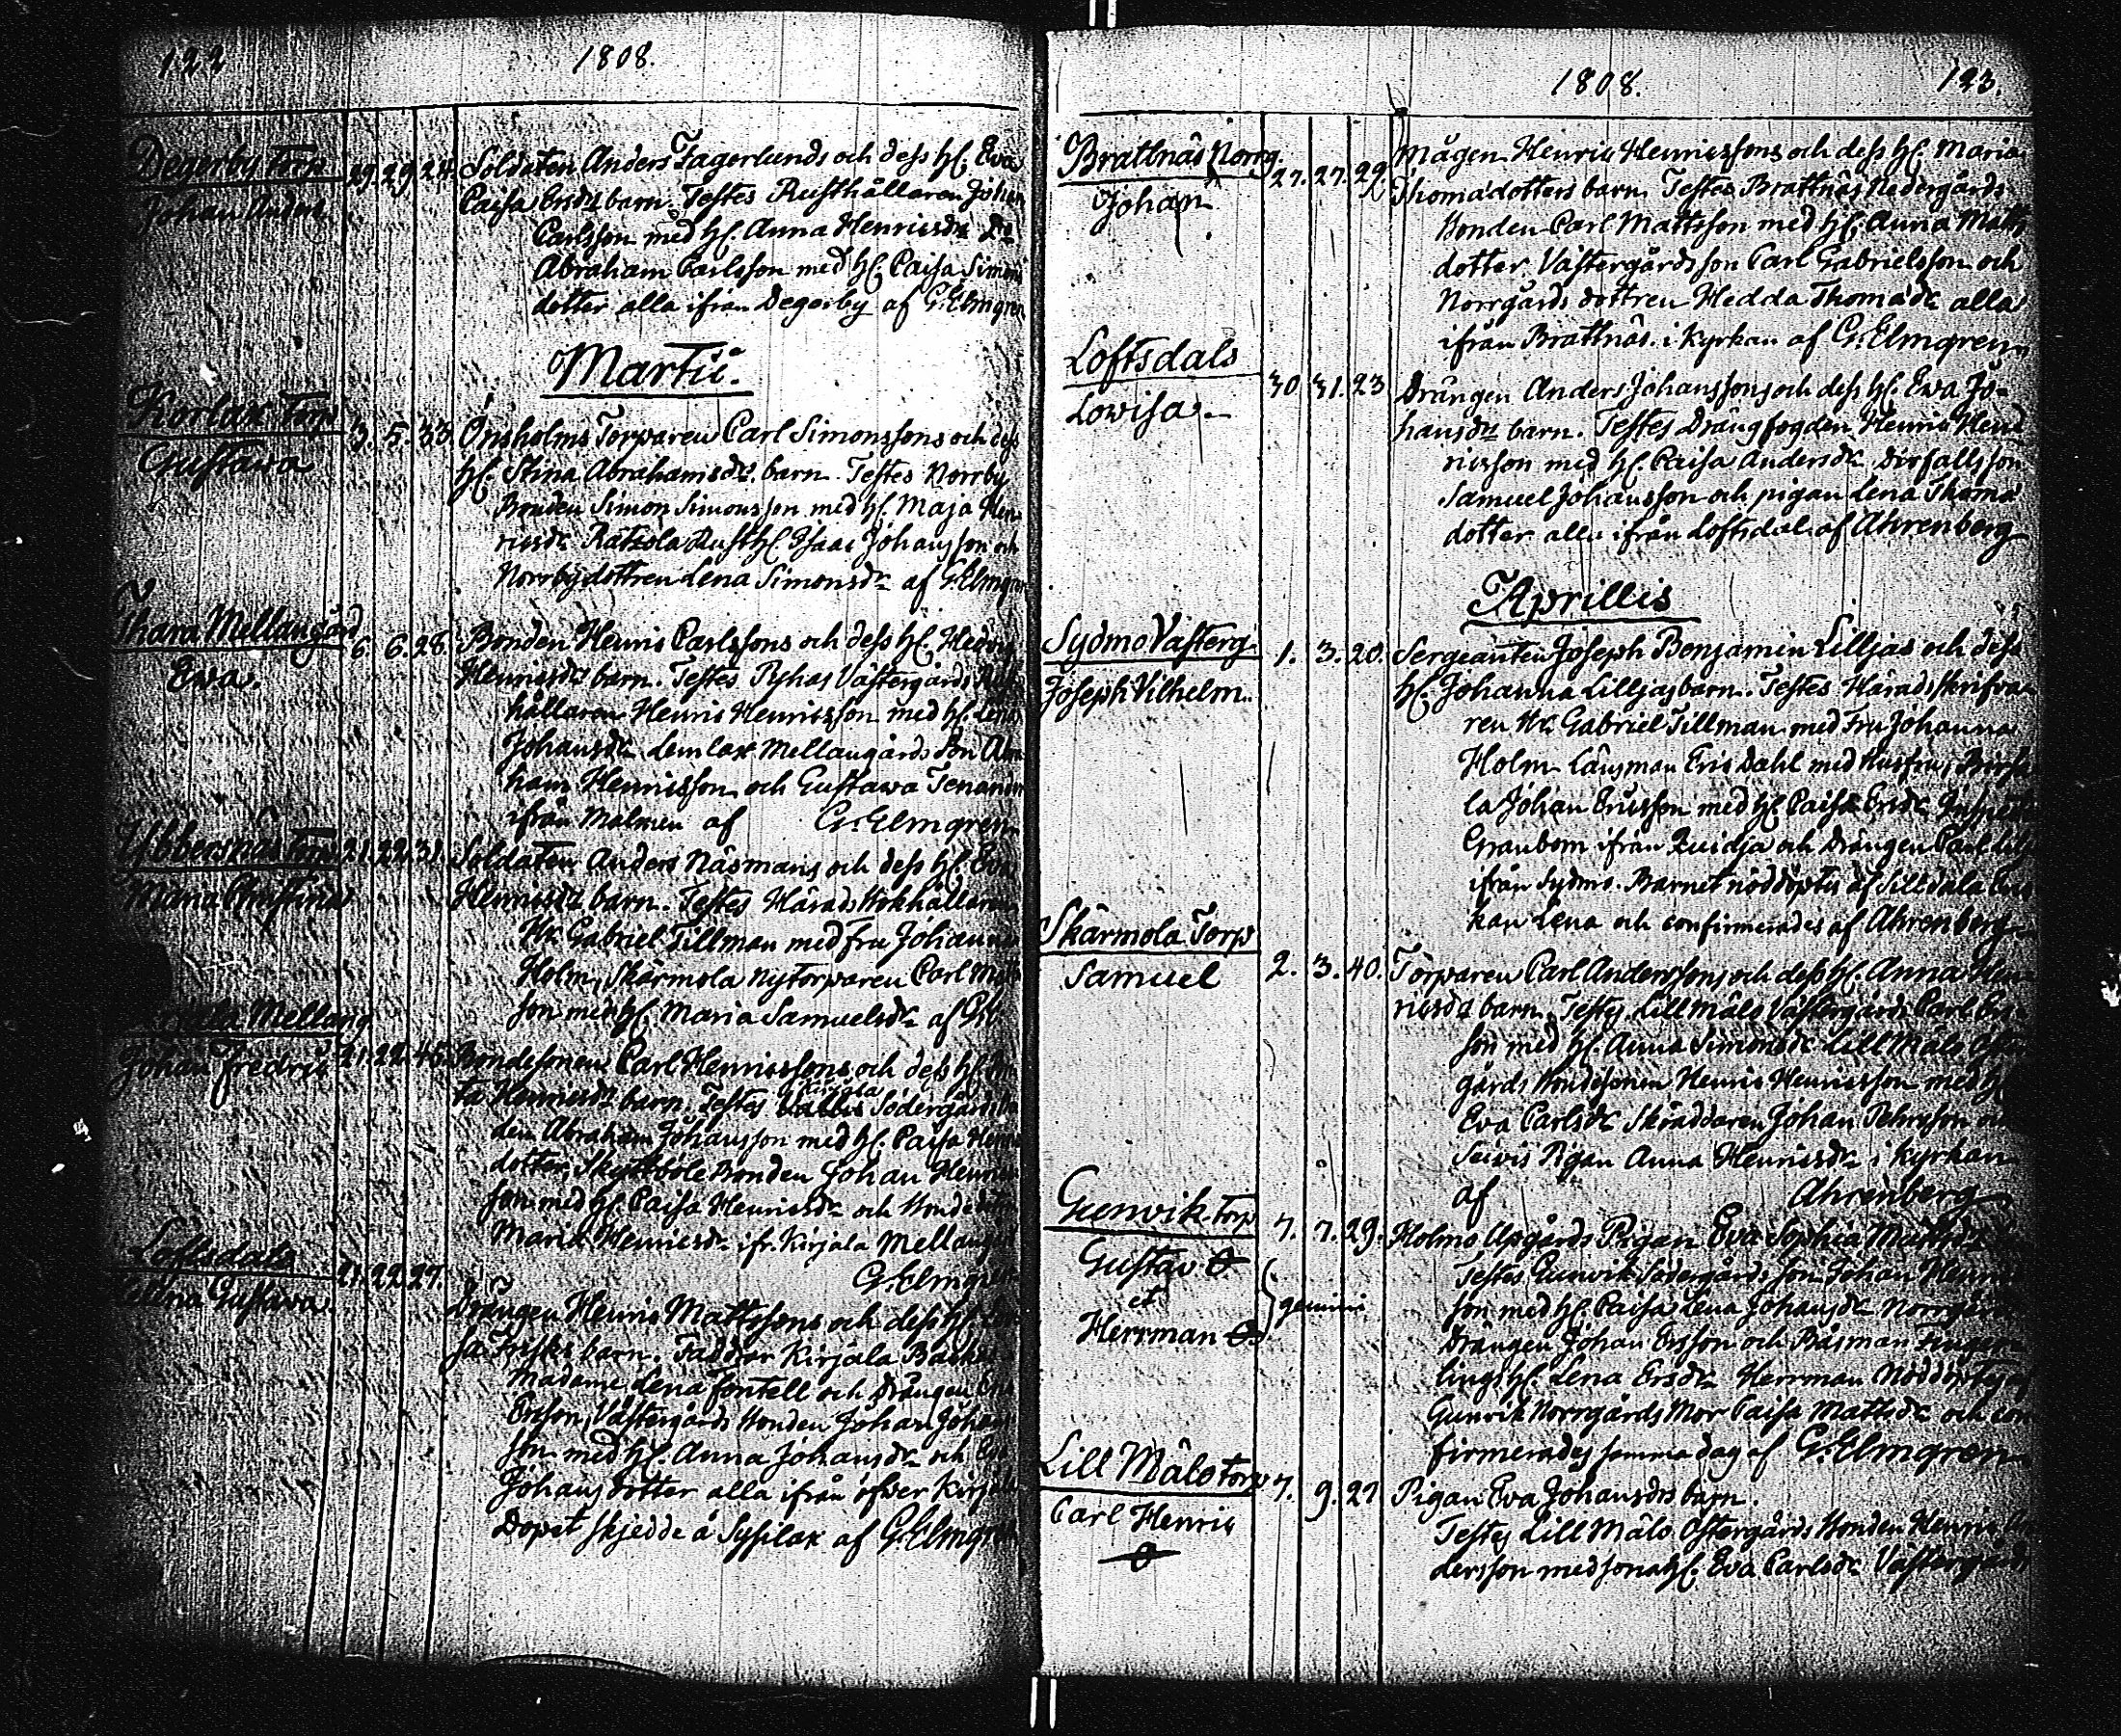 122 1808.
Degerby Torp
Johan Anders
29. 29. 24. Soldaten Anders Fagerlunds och dess H. Ewa
Caisa Ersdrs barn. Testes Rusthållaren Johan
Carlsson med H. Anna Henricsdr Do
Abraham Carlsson med H. Caisa Simons
dotter alla ifrån Degerby af G. Elmgren
Martii.
Korlax Torp
Gustawa
3. 5. 33. Önsholms Torparen Carl Simonssons och dess
H. Stina Abrahamsdrs barn. Testes Norrby
Bonden Simon Simonsson med H. Maja Hen
ricsdr Rätzola Rusth. Isaac Johansson och
Norrby dottren Lena Simonsdr af G. Elmgren
Mellangård
Ewa.
6. 6. 28. Bonden Henric Carlssons och dess H. Hedvig
Henricsdrs barn. Testes Västergårds Rust
hållaren Henric Henricsson med H. Lena
Johansdr Lemlax Mellangårds Son Abra
ham Henricsson och Gustawa
ifrån Malmen af G. Elmgren
Ybbersnäs Torp
Maria Christina
21. 22. 31. Soldaten Anders Näsmans och dess H. Eva
Henricsdrs barn. Testes Härads
Hr. Gabriel Tillman med Fru Johanna
Holm, Skärmola nytorparen Carl Matts
son med H. Maria Samuelsdr af G.E.
Mellang
Johan Fredric
21. 22. 46. Bondesonen Carl Henricssons och dess H.
ta Henricsdrs barn. Testes Kirjala Södergårds Bon
den Abraham Johansson med H. Caisa Henrics
dotter, Skyttböle Bonden Johan Henrics
son med H. Caisa Henricsdr och
Maria Henricsdr ifr. Kirjala Mellang
G. Elmgren
Loftsdals
Gustawa.
21. 22. 27. Drängen Henric Mattssons och dess H.
sa Frisks barn. Faddrar Kirjala Backas
Madame Lena Fontell och Drängen Eric
Ersson, Västergårds Bonden Johan Johans
son med H. Anna Johansdr och Eva
Johansdotter alla ifrån öfver Kirjala
Dopet skjedde å Sysilax af G. Elmgren
1808. 123.
Brattnäs Norrg.
Johan
27. 27. 29. Mågen Henric Henricssons och dess H. Maria
Thomædotters barn. Testes Brattnäs Nedergårds
Bonden Carl Mattsson med H. Anna Matts
dotter Västergårds son Carl Gabrielsson och
Norrgårds dottren Hedda Thomædr alla
ifrån Brattnäs. i Kyrkan af G. Elmgren
Loftsdals
Lowisa.
30. 31. 23. Drängen Anders Johanssons och dess H. Ewa Jo-
hansdrs barn. Testes Drängfogden Henric Hend
ricsson med H. Caisa Andersdr, Dirfallsson
Samuel Johansson och pigan Lena Thomæ
dotter alla ifrån Loftsdal af Ahrenberg
Aprillis
Sydmo Västerg.
Joseph Vilhelm.
1. 3. 20. Sergeanten Joseph Benjamin Lilljas och dess
H. Johanna Lilljas barn. Testes Häradsskrifva
ren Hr. Gabriel Tillman med Fru Johanna
Holm Länsman Eric Dahl med Husfru,
la Johan Ericsson med H. Caisa Ersdr
Granbom ifrån Quidja och Drängen Carl
ifrån Sydmo. Barnet nöddöptes af Silldala
kan Lena och confirmerades af Ahrenberg
Skärmola Torp
Samuel
2. 3. 40. Torparen Carl Anderssons och dess H. Anna Hen
ricsdrs barn. Testes Lill Målo Västergårds Carl Ers-
son med H. Anna Simonsdr Lill Målo Öster
gårds Bondesonen Henric Henricsson med H.
Eva Carlsdr Skräddaren Johan Pehrsson och
Seivis Pigan Anna Henricsdr i Kyrkan
af Ahrenberg
Gunvik Torp
Gustav
et
Herrman
gemini
7. 7. 29. Holmo Upgårds Pigan Eva Sophia
Testes Gunvik Södergårds son Johan Henrics
son med H. Caisa Lena Johansdr Norrgårds
Drängen Johan Ersson och Båsman
lings H. Lena Ersdr Herrman Nöddöptes af
Gunvik Norrgårds Mor Caisa Mattsdr och con
firmerades samma dag af G. Elmgren
Lill Målo torp
Carl Henric
7. 9. 27 Pigan Eva Johansdrs barn.
Testes Lill Målo Östergårds Bonden Henric An
dersson med sonah. Eva Carlsdr Västergårds